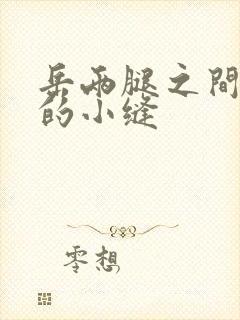 岳兩腿之間
的小缝
零想